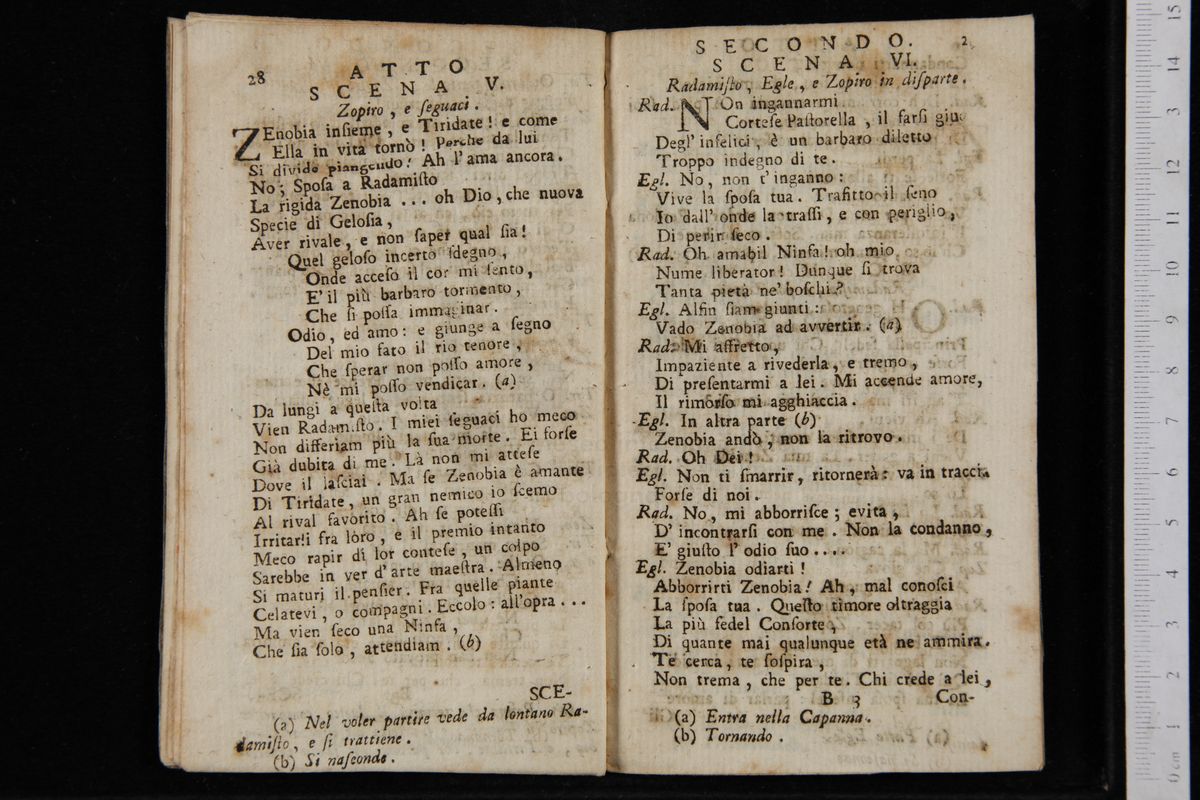 28
ATTO
SCENA V.
Zopiro, e ſeguaci.
ZEnobia inſieme, e Tiridate! e come
Ella in vita tornò! Perche da lui
Si divide piangendo! Ah l'ama ancora.
No; Spoſa a Radamiſto
La rigida Zenobia ... oh Dio, che nuova
Specie di Geloſia,
Aver rivale, e non ſaper qual ſia!
Quel geloſo incerto ſdegno,
Onde acceſo il cor mi ſento,
E' il più barbaro tormento,
Che ſi poſſa immaginar.
Odio, ed amo: e giunge a ſegno
Del mio fato il rio tenore,
Che ſperar non poſſo amore,
Nè mi poſſo vendicar. (a)
Da lungi a queſta volta
Vien Radamiſto. I miei ſeguaci ho meco
Non differiam più la ſua morte. Ei forſe
Già dubita di me. Là non mi atteſe
Dove il laſciai. Ma ſe Zenobia è amante
Di Tiridate, un gran nemico io ſcemo
Al rival favorito. Ah ſe poteſſi
Irritarli fra lòro, e il premio intanto
Meco rapir di lor conteſe, un colpo
Sarebbe in ver d'arte maeſtra. Almeno
Si maturi il penſier. Fra quelle piante
Celatevi, o compagni. Eccolo: all'opra...
Ma vien ſeco una Ninfa,
Che ſia ſolo, attendiam. (b)
SCE-
(a) Nel voler partire vede da lontano Ra-
damiſto, e ſi trattiene.
(b) Si naſconde.
SECONDO. 2
SCENA VI.
Radamiſto, Egle, e Zopiro in diſparte.
Rad. NOn ingannarmi
Corteſe Paſtorella, il farſi giuo
Degl' infelici, è un barbaro diletto
Troppo indegno di te.
Egl. No, non t'inganno:
Vive la ſpoſa tua. Trafitto il ſeno
Io dall' onde la traſſi, e con periglio,
Di perir ſeco.
Rad. Oh amabil Ninfa! oh mio
Nume liberator! Dunque ſi trova
Tanta pietà ne' boſchi?
Egl. Alfin ſiam giunti:
Vado Zenobia ad avvertir. (a)
Rad. Mi affretto,
Impaziente a rivederla, e tremo,
Di preſentarmi a lei. Mi accende amore,
Il rimorſo mi agghiaccia.
Egl. In altra parte (b)
Zenobia andò, non la ritrovo.
Rad. Oh Dei!
Egl. Non ti ſmarrir, ritornerà: va in traccia
Forſe di noi.
Rad. No, mi abborriſce; evita,
D' incontrarſi con me. Non la condanno,
E' giuſto l' odio ſuo....
Egl. Zenobia odiarti!
Abborrirti Zenobia! Ah, mal conoſci
La ſpoſa tua. Queſto timore oltraggia
La più fedel Conſorte,
Di quante mai qualunque età ne ammira.
Te cerca, te ſoſpira,
Non trema, che per te. Chi crede a lei,
B 3 Con-
(a) Entra nella Capanna.
(b) Tornando.
15
14
13
12
11
10
9
8
7
6
5
4
3
2
1
0 cm